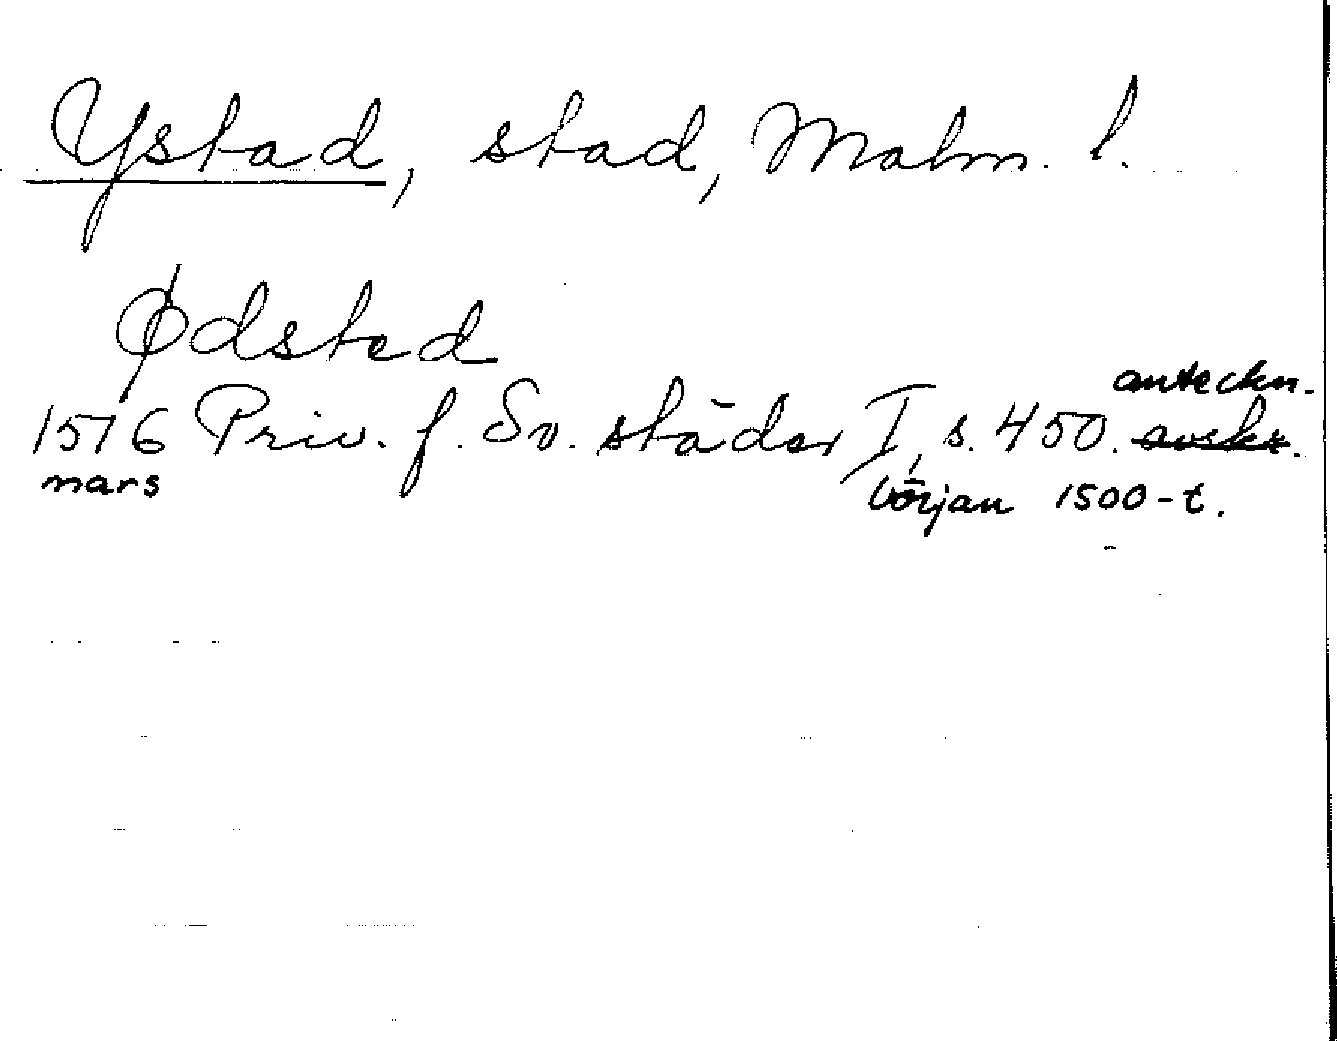 Ystad, stad, Malm. l.
Ødsted
anteckn.
1516 Priv. f. Sv. städer I, s. 450. avskr.
mars
början 1500-t.